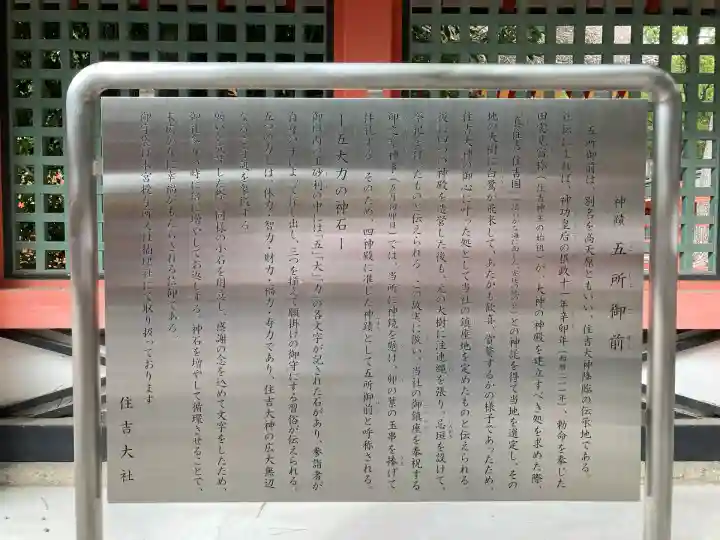 神蹟 五所御前
五所御前は、別名を高天原ともいい、住吉大神降臨の伝承地である。
社伝によれば、神功皇后の摂政十一年辛卯年(西暦二一一年)、勅命を奉じた
田裳見宿祢(住吉神主の始祖)が、大神の神殿を建立すべき処を求めた際、
「真住吉 住吉国」との神託を得て当地を選定し、その
地の大樹に白鷺が飛来して、あたかも歓喜、賞賛するかの様子であったため、
住吉大神の御心に叶った処として当社の鎮座地を定めたものと伝えられる。
後に四つの神殿を造営した後も、元の大樹に注連縄を張り、忌垣を設けて、
今に受けたものと伝えられる。この故実に倣い、当社の御鎮座を奉祝する
卯之葉神事(五月初卯日)では、当所に神鏡を懸け、卯の葉の玉串を捧げて
拝礼する。そのため、四神殿に准じた神蹟として五所御前と呼称される。
―五大力の神石―
御垣内の玉砂利の中には「五」「大」「力」の各文字が記された石があり、参詣者が
自身の手によって探し出し、三つを揃えて願掛けの御守にする習俗が伝えられる。
五つの力とは、体力・智力・財力・福力・寿力であり、住吉大神の広大無辺
なるご神徳を象徴する。
願いが成就した際、同様の小石を用意し、感謝の念を込めて文字をしたため、
御礼参りの時に倍に増やしてお返しする。神石を増やして循環させることで、
多くの人に幸福がもたらされる信仰である。
御守袋は楠珺社にて取り扱っております。
住吉大社